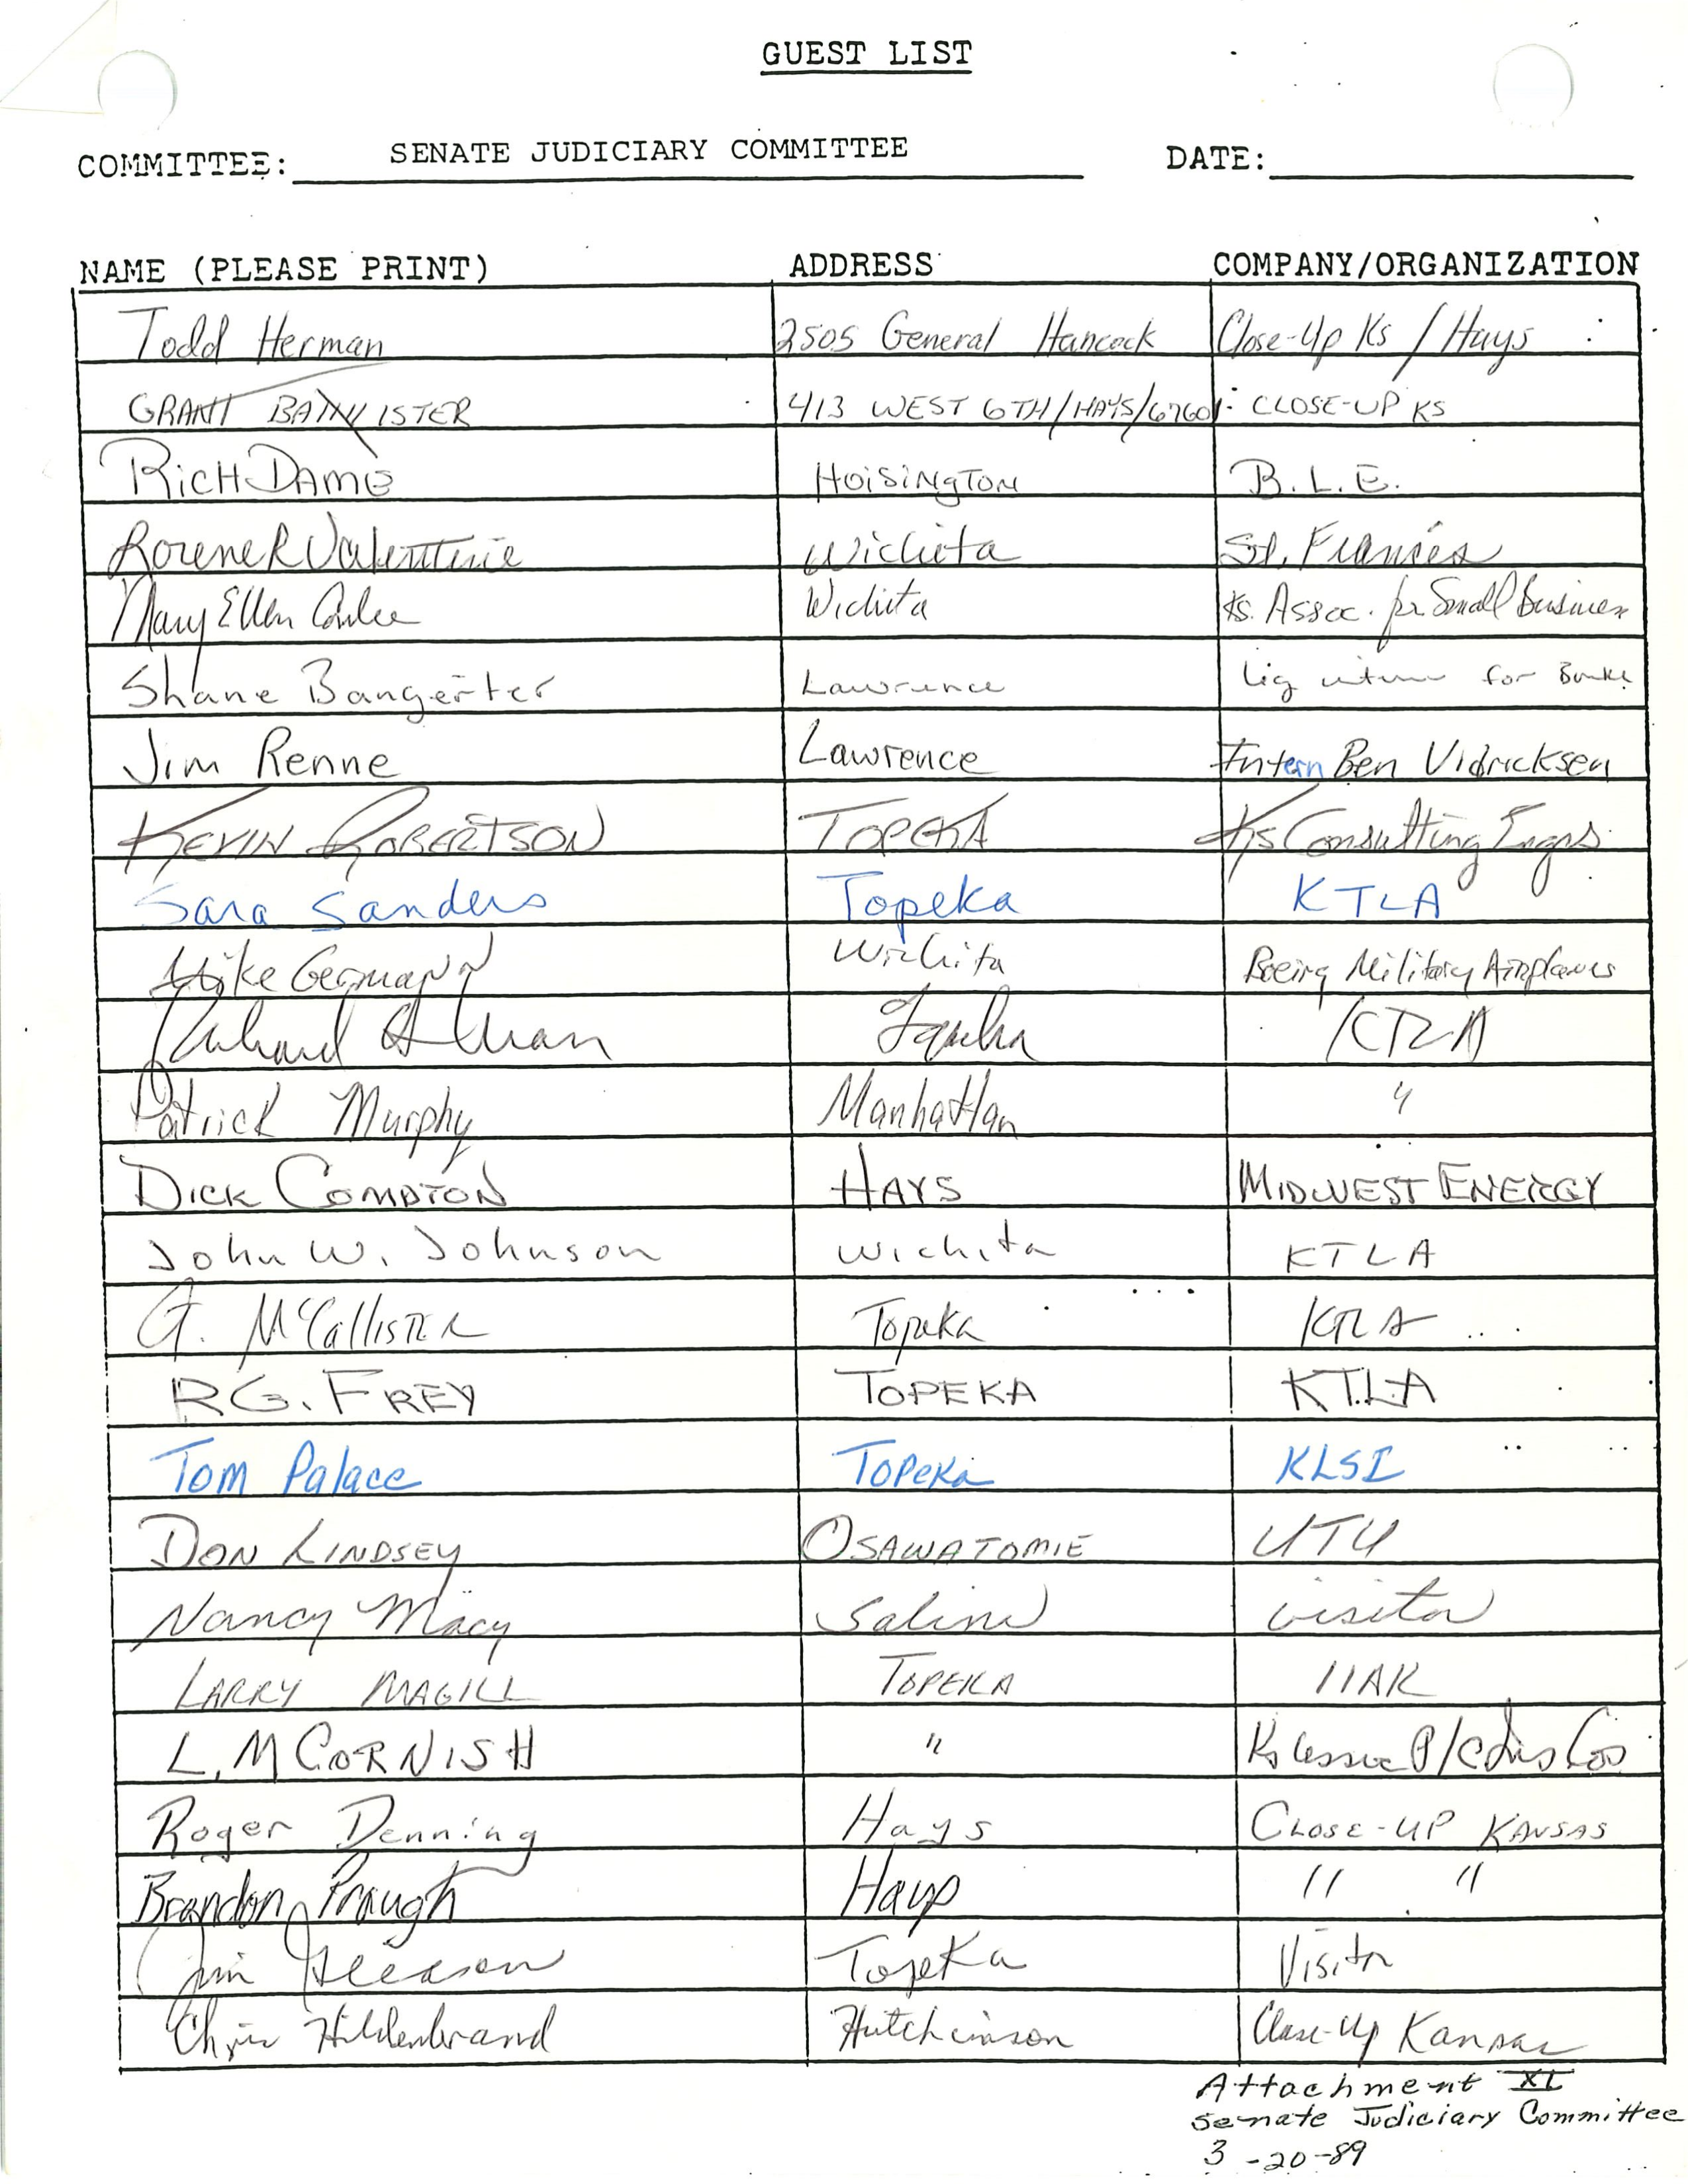 GUEST LIST
COMMITTEE: SENATE JUDICIARY COMMITTEE DATE:
NAME (PLEASE PRINT) ADDRESS COMPANY/ORGANIZATION
Todd Herman 2505 General Hancock Close-Up Ks / Hays
GRANT BANNISTER 413 WEST 6TH/HAYS/67601 CLOSE-UP KS
RICH DAME HOISINGTON B.L.E.
Lorene R Valentine Wichita St. Francis
Mary Ellen Conlee Wichita Ks. Assoc. for Small Business
Shane Bangerter Lawrence for
Jim Renne Lawrence Intern Ben Vidricksen
KEVIN ROBERTSON TOPEKA Ks Consulting Engrs
Sara Sanders Topeka KTLA
Mike Germann Wichita Boeing Military Airplanes
Richard Topeka KTLA
Patrick Murphy Manhattan "
DICK COMPTON HAYS MIDWEST ENERGY
John W. Johnson Wichita KTLA
G. McCALLISTER Topeka KTLA
R.G. FREY TOPEKA KTLA
Tom Palace Topeka KLSI
DON LINDSEY OSAWATOMIE UTU
Nancy Macy Salina visitor
LARRY MAGILL TOPEKA IIAK
L.M CORNISH " Ks Assoc P/C Ins Cos
Roger Denning Hays CLOSE-UP KANSAS
Brandon Prough Hays " "
Jim Gleason Topeka Visitor
Chris Hildenbrand Hutchinson Close-Up Kansas
Attachment XI
Senate Judiciary Committee
3-20-89